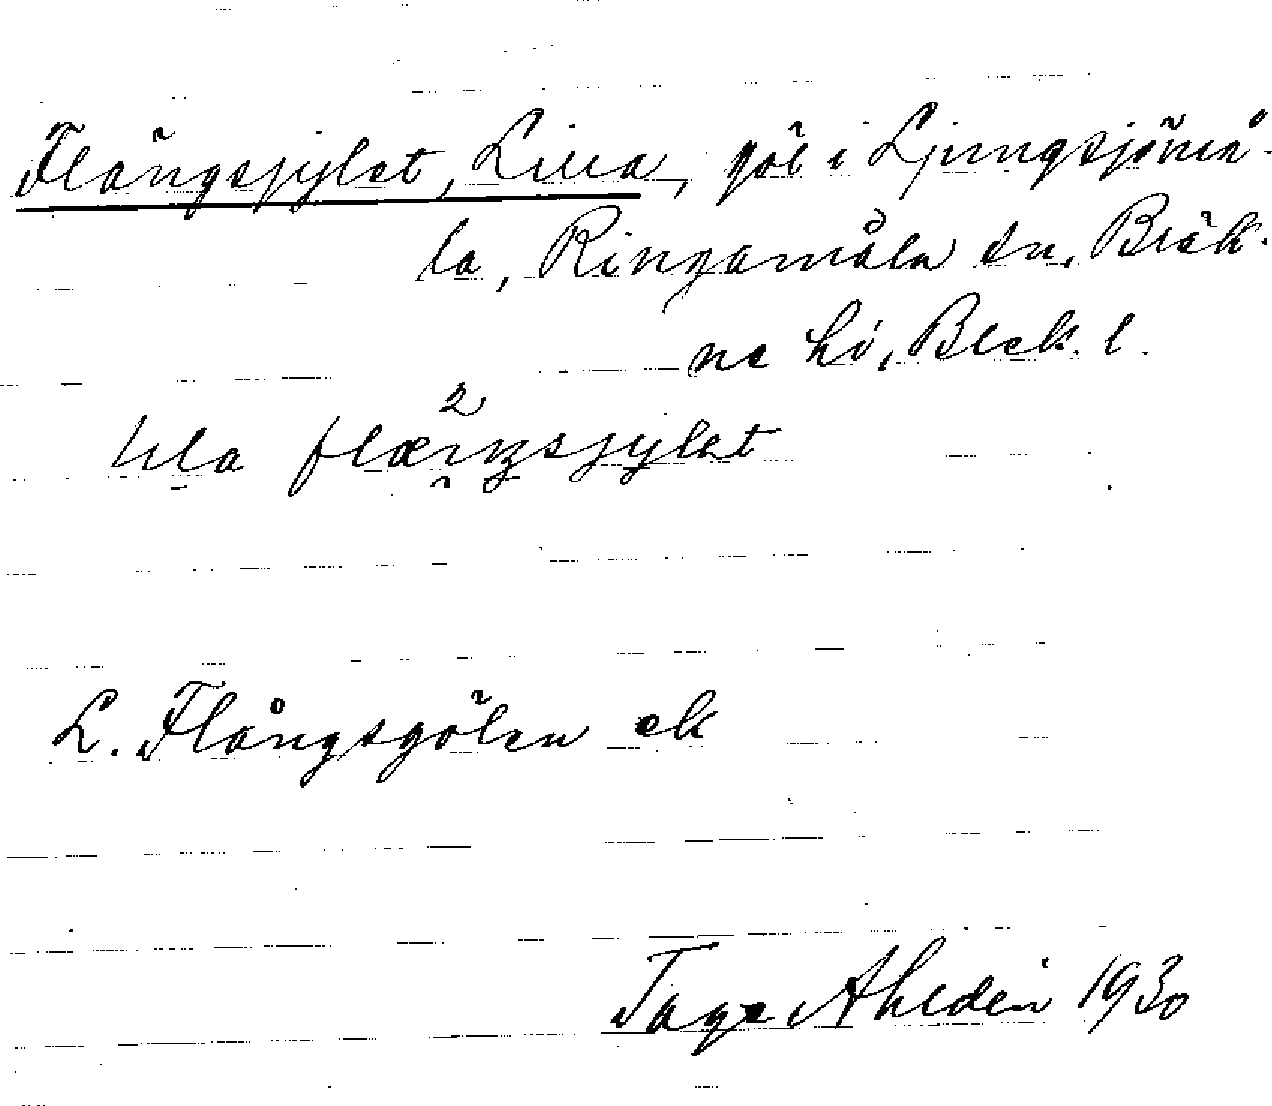 Flängsjylet, Lilla, göl i Ljungsjömå-
la, Ringamåla sn, Bräk-
ne hd, Blek. l.
lila flæŋsjylet
2
L. Flångsgölen ek
Tage Ahldén 1930